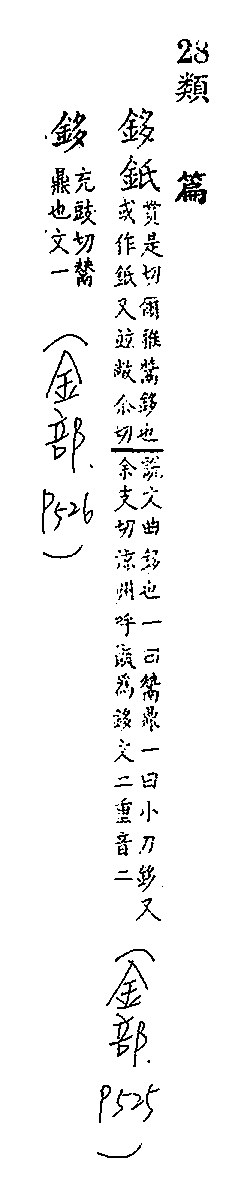 28類篇
鉹
賞是切爾雅鬵鉹也說文曲鉹也一曰鬵鼎一曰小刀鉹又
或作又竝敞尒切余支切涼州呼甑為鉹文二重音二
（金部. P525）
鉹
充豉切鬵
鼎也文一
（金部. P526）